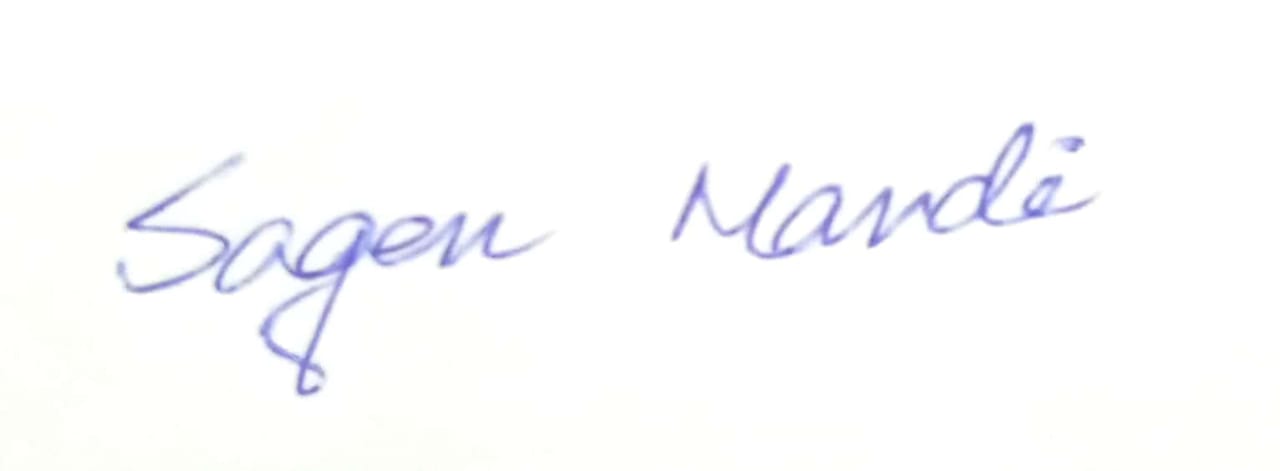 Sagen Mandi